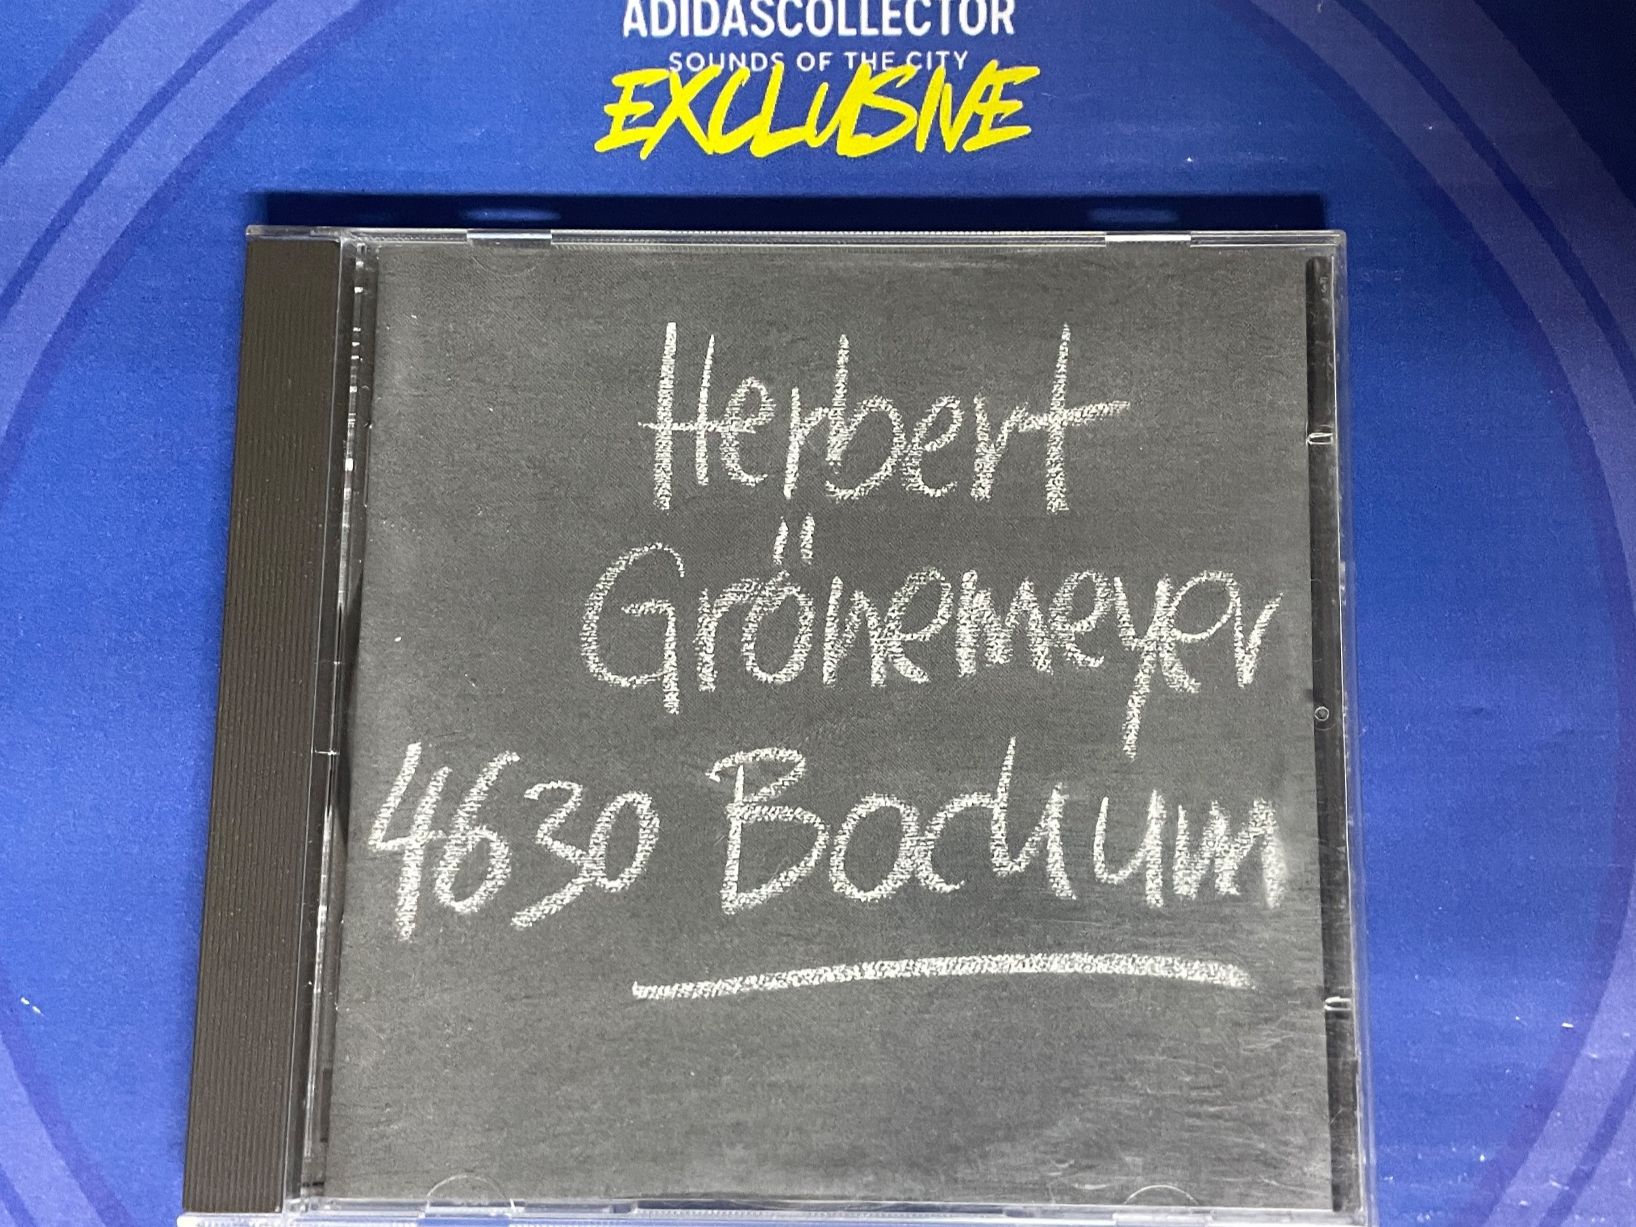 ADIDASCOLLECTOR
SOUNDS OF THE CITY
EXCLUSIVE
Herbert
Grönemeyer
4630 Bochum